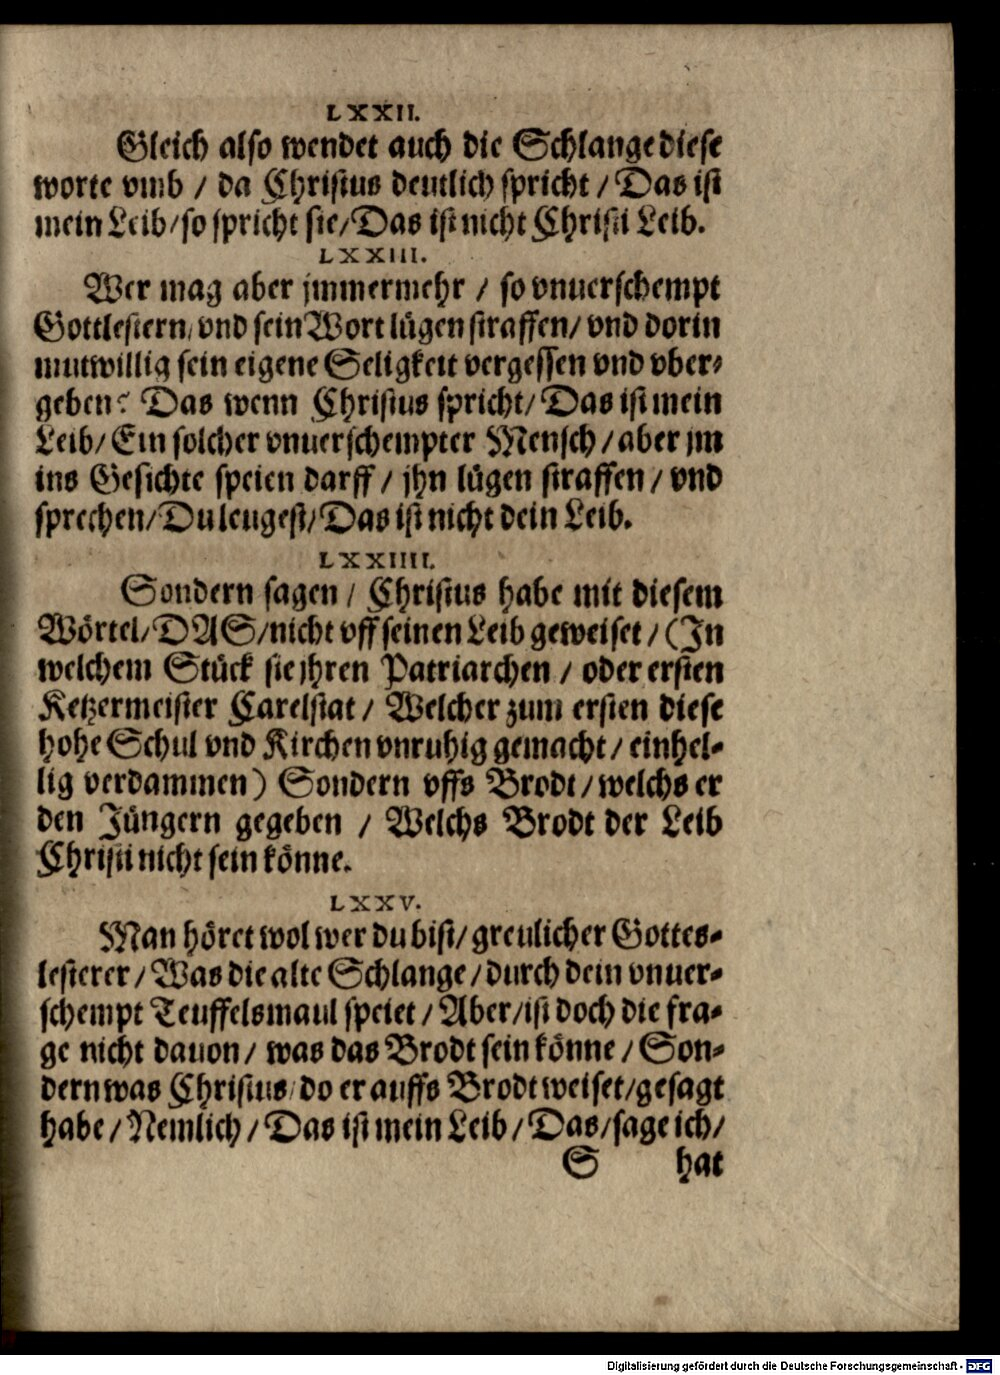 LXXII.
Gleich also wendet auch die Schlange diese
worte vmb / da Christus deutlich spricht / Das ist
mein Leib / so spricht sie / Das ist nicht Christi Leib.
LXXIII.
Wer mag aber jmmermehr / so vnuerschempt
Gottlestern, vnd sein Wort lügen straffen / vnd dorin
mutwillig sein eigene Seligkeit vergessen vnd vber-
geben? Das wenn Christus spricht / Das ist mein
Leib / Ein solcher vnuerschempter Mensch / aber jm
ins Gesichte speien darff / jhn lügen straffen / vnd
sprechen / Du leugest / Das ist nicht dein Leib.
LXXIIII.
Sondern sagen / Christus habe mit diesem
Wörtel / DAS / nicht vff seinen Leib geweiset / (In
welchem Stück sie jhren Patriarchen / oder ersten
Ketzermeister Carelstat / Welcher zum ersten diese
hohe Schul vnd Kirchen vnruhig gemacht / einhel-
lig verdammen) Sondern vffs Brodt / welchs er
den Jüngern gegeben / Welchs Brodt der Leib
Christi nicht sein könne.
LXXV.
Man höret wol wer du bist / greulicher Gottes-
lesterer / Was die alte Schlange / durch dein vnuer-
schempt Teuffelsmaul speiet / Aber / ist doch die fra-
ge nicht dauon / was das Brodt sein könne / Son-
dern was Christus / do er auffs Brodt weiset / gesagt
habe / Nemlich / Das ist mein Leib / Das / sage ich /
S hat
Digitalisierung gefördert durch die Deutsche Forschungsgemeinschaft - DFG